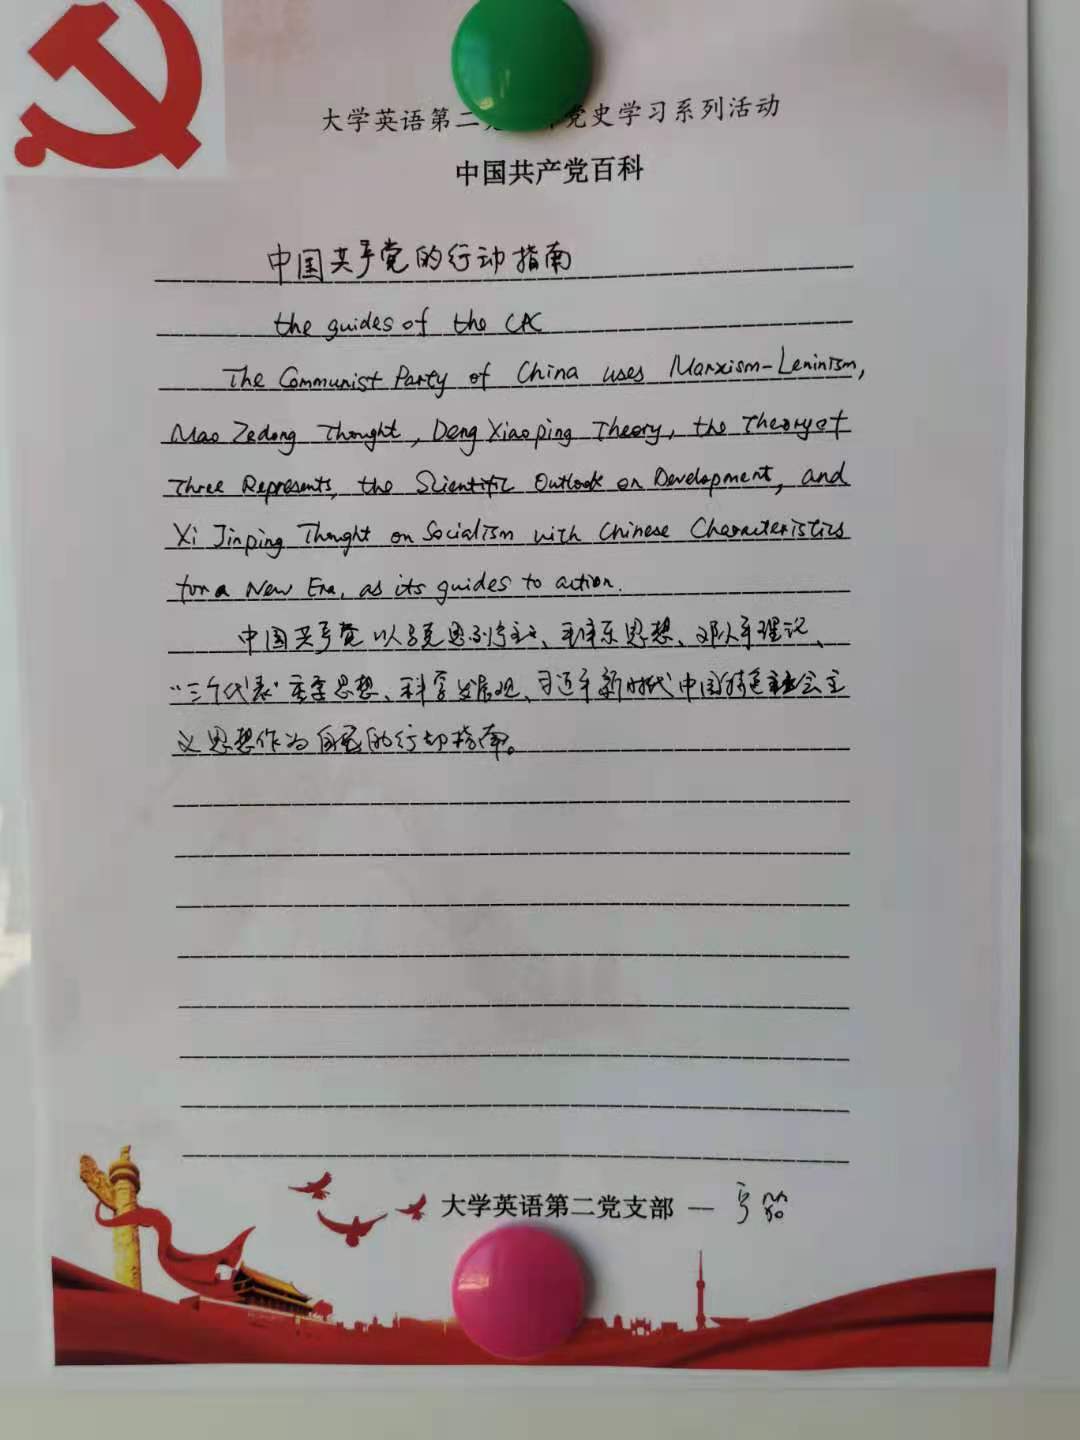 大学英语第二党 党史学习系列活动
中国共产党百科
中国共产党的行动指南
the guides of the CPC
The Communist Party of China uses Marxism-Leninism,
Mao Zedong Thought, Deng Xiaoping Theory, the Theory of
Three Represents, the Scientific Outlook on Development, and
Xi Jinping Thought on Socialism with Chinese Characteristics
for a New Era, as its guides to action.
中国共产党以马克思列宁主、毛泽东思想、邓小平理论、
“三个代表”重要思想、科学发展观、习近平新时代中国特色社会主
义思想作为自己的行动指南。
大学英语第二党支部 —